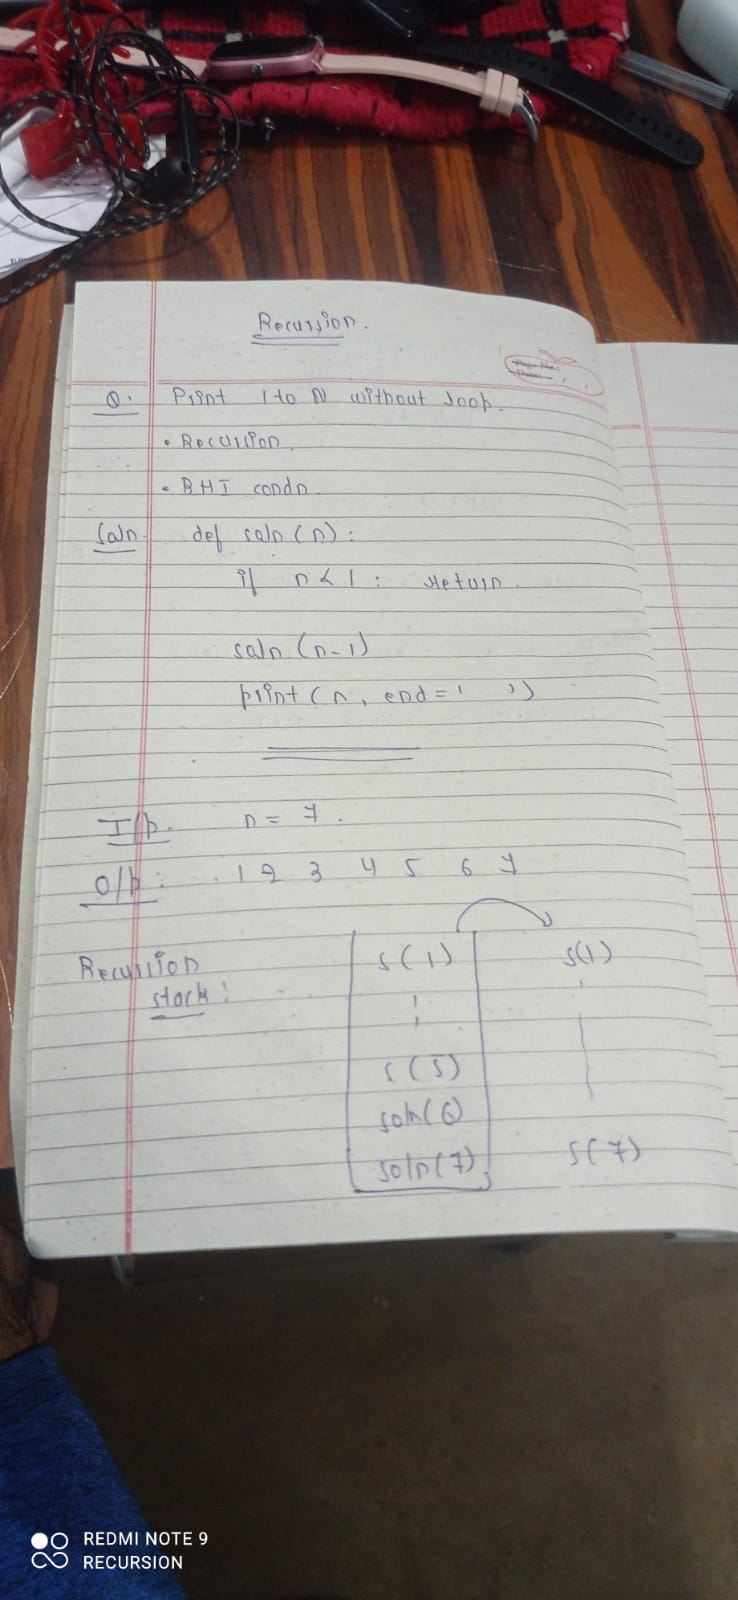 Recursion.
Page No.
Date:
Q. Print 1 to N without loop.
• Recursion.
• BHI condn.
Soln. def soln (n):
if n < 1 : return.
soln (n-1)
print (n, end = ' ')
I/p. n = 7.
O/p: 1 2 3 4 5 6 7
Recursion stack:
s(1) s(1)
s(5)
soln(6)
soln(7) s(7)
REDMI NOTE 9
RECURSION